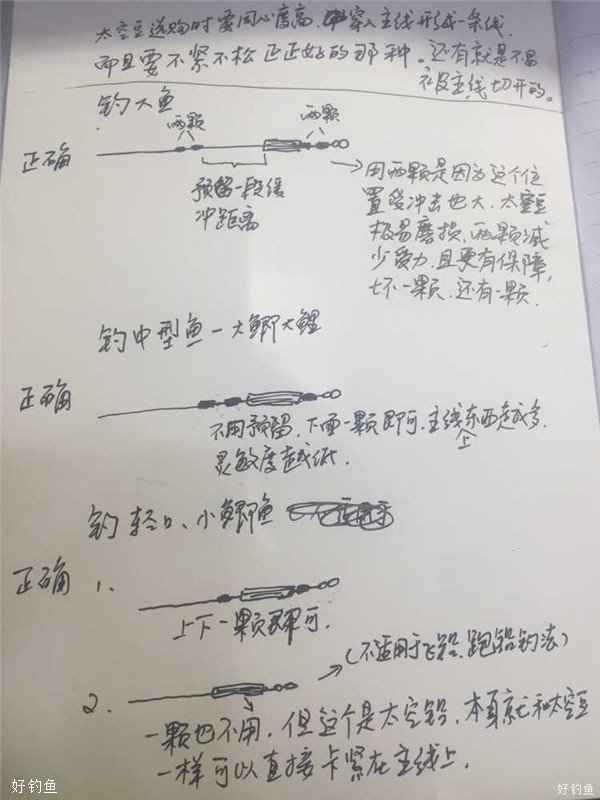 太空豆选购时要同心度高，穿入主线形成一条线，
而且要不紧不松正正好的那种。还有就是不易
被主线切开的。
钓大鱼
两颗
两颗
正确
预留一段缓
冲距离
用两颗是因为这个位
置受冲击也大，太空豆
极易磨损，两颗减
少受力，且更有保障，
坏一颗，还有一颗.
钓中型鱼一大鲫大鲤
正确
不用预留，下面一颗即可，主线上东西越多，
灵敏度越低.
钓轻口、小鲫鱼
正确
1、
上下一颗即可.
(不适用于飞铅、跑铅钓法)
2、
一颗也不用，但这个是太空铅，本身就和太空豆
一样可以直接卡紧在主线上.
好钓鱼
好钓鱼